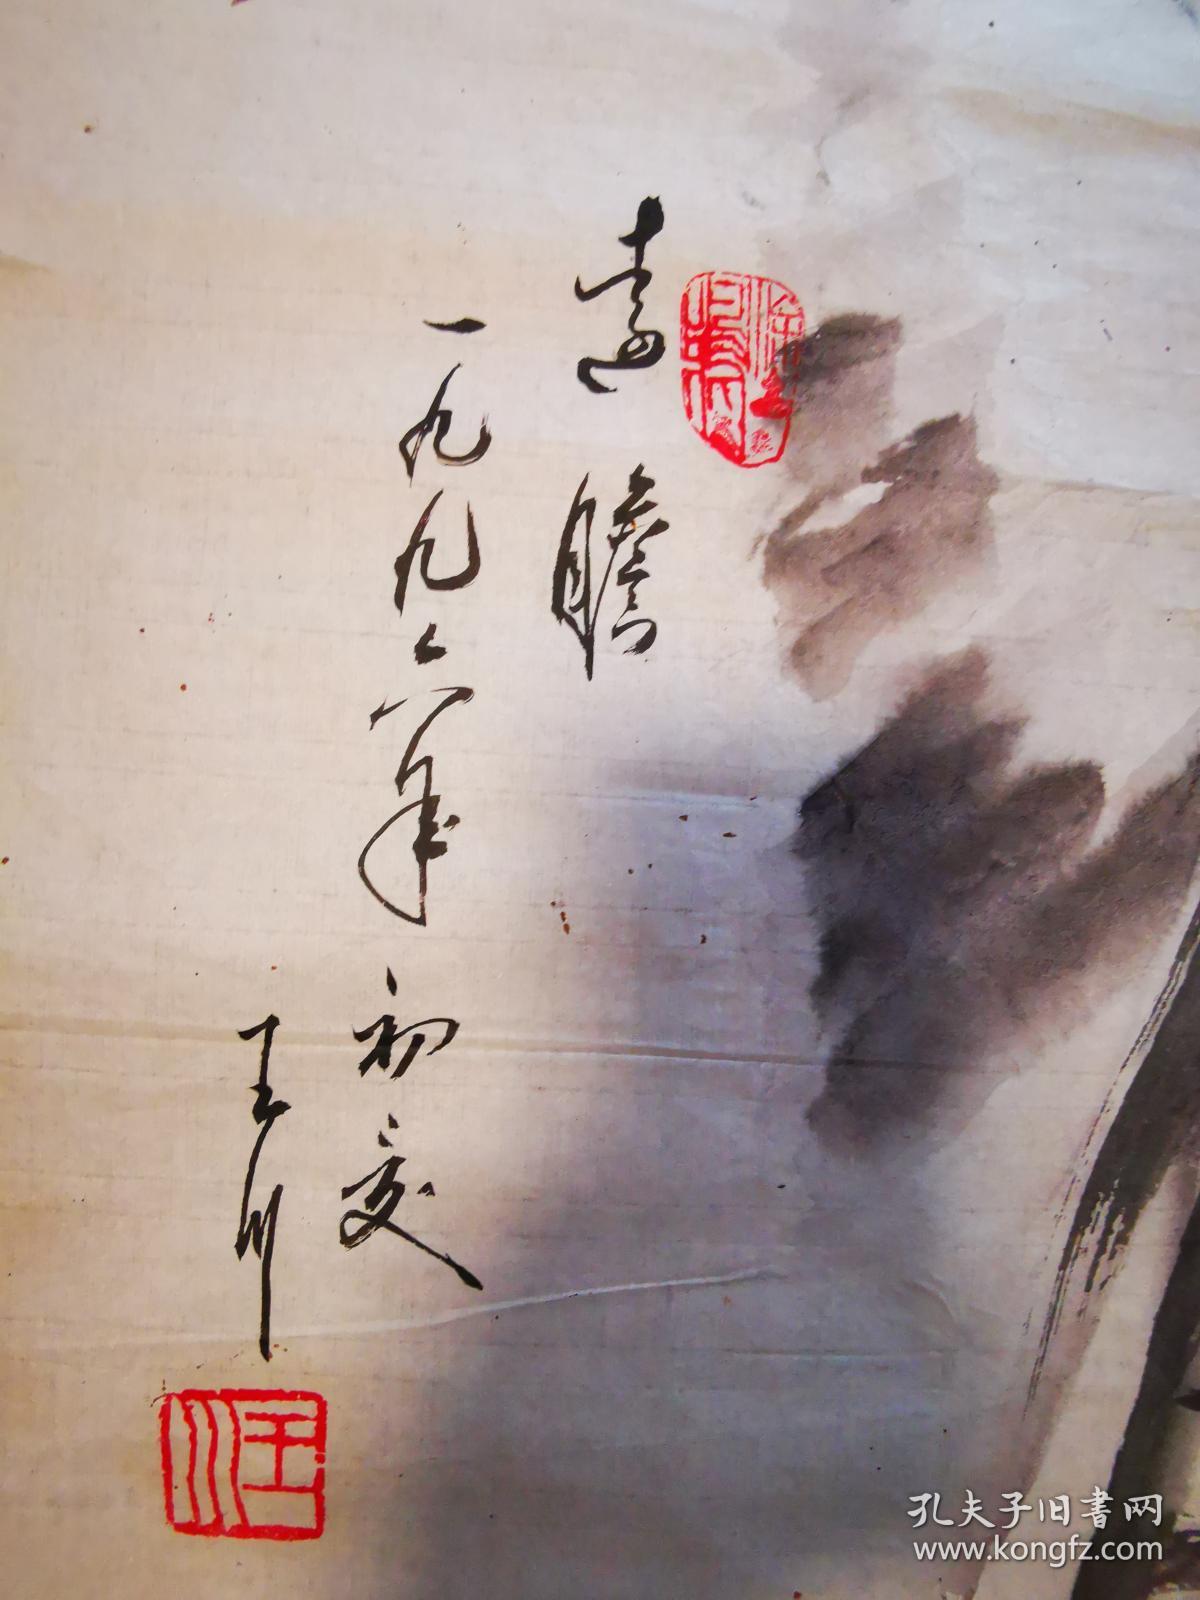 遠瞻
一九九六年初夏
王川
王川
孔夫子旧書网
www.kongfz.com